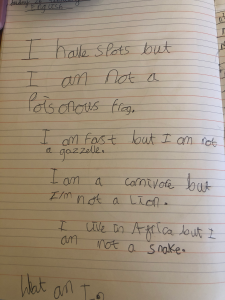 I have spots but
I am not a
Poisonous frog.
I am fast but I am not
a gazzelle.
I am a carnivore but
I'm not a Lion.
I live in Africa but I
am not a snake.
What am I